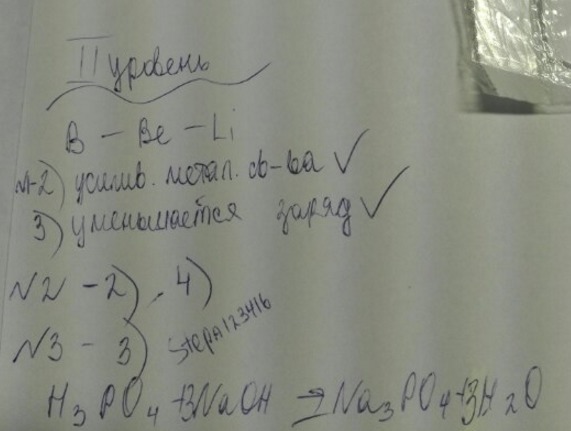 II уровень
B – Be – Li
N1-2) усилив. метал. св-ва ✓
3) уменьшается заряд ✓
N2 – 2), 4)
N3 – 3)
Stepa123416
H₃PO₄ + 3NaOH → Na₃PO₄ + 3H₂O